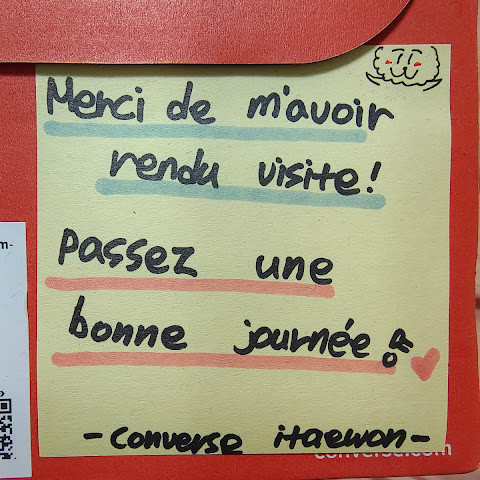 Merci de m'avoir
rendu visite!
passez une
bonne journée!
- converse itaewon -
converse.com